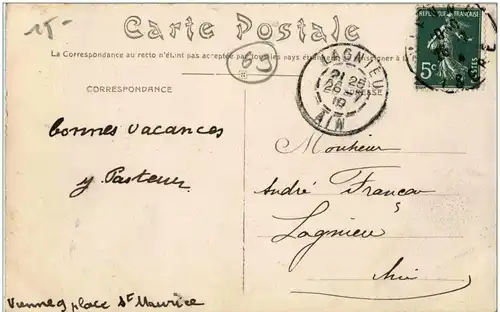 15-
Carte Postale
La Correspondance au recto n'étant pas acceptée par tous les pays étrangers, se renseigner à la
69
LAGNIEU
21 25
26 8
10
AIN
REPUBLIQUE FRANÇAISE
5c
POSTES
CORRESPONDANCE
ADRESSE
bonnes vacances
y. Pasteur
Monsieur
André França
Lagnieu
Ain
Vienne 9 place St Maurice